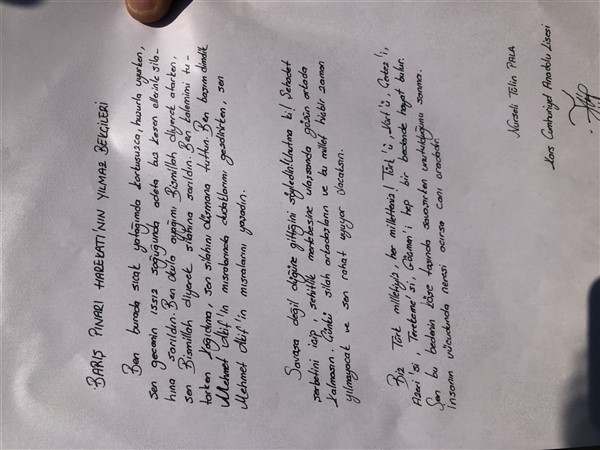 BARIŞ PINARI HAREKATI'NIN YILMAZ BEKÇİLERİ
Ben burada sıcak yatağımda korkusuzca, huzurla uyurken,
sen gecenin ıssız soğuğunda adeta buz kesen ellerinle sila-
hına sarıldın. Ben okula ayağımı Bismillah diyerek atarken,
sen Bismillah diyerek silahına sarıldın. Ben kalemimi tu-
tarken kağıdıma, sen silahını düşmana tuttun. Ben başım dimdik
Mehmet Akif'in mısralarında dudaklarımı gezdirirken, sen
Mehmet Akif'in mısralarını yazdın.
Savaşa değil düğüne gittiğini söyledin. Unutma ki! Şehadet
şerbetini içip, şehitlik mertebesine ulaşsanda gözün arkada
kalmasın. Çünkü silah arkadaşların ve bu millet hiçbir zaman
yılmayacak ve sen rahat uyuyor olacaksın.
Biz Türk milletiyiz, her milletteniz! Türk'ü, Kürt'ü, Çerkez'i,
Azeri'si, Terekeme'si, Göçmen'i hep bir bedende hayat bulur.
Sen bu bedenin köşe taşında savaşırken unutulduğunu sanma.
İnsanın vücudunda neresi acırsa canı oradadır.
Nurseli Tülin PALA
Kars Cumhuriyet Anadolu Lisesi